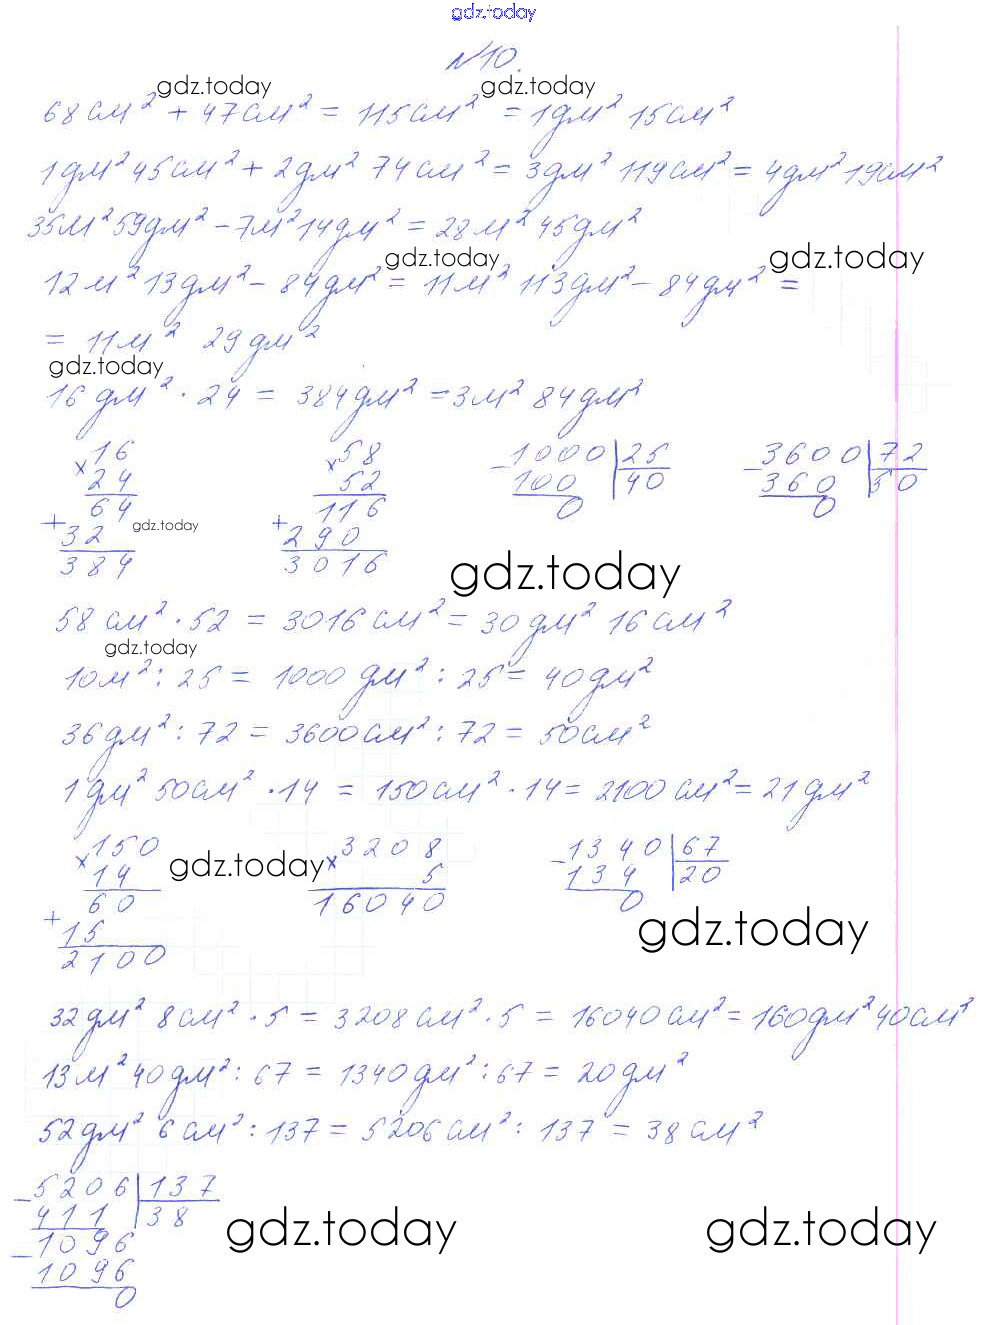 gdz.today
№10.
gdz.today gdz.today
68 см² + 47 см² = 115 см² = 1 дм² 15 см²
1 дм² 45 см² + 2 дм² 74 см² = 3 дм² 119 см² = 4 дм² 19 см²
35 м² 59 дм² - 7 м² 14 дм² = 28 м² 45 дм²
gdz.today gdz.today
12 м² 13 дм² - 84 дм² = 11 м² 113 дм² - 84 дм² =
= 11 м² 29 дм²
gdz.today
16 дм² · 24 = 384 дм² = 3 м² 84 дм²
16 58 1000 | 25 3600 | 72
× 24 × 52 - 100 | 40 - 360 | 50
64 116 0 0
+ 32 gdz.today + 290
384 3016 gdz.today
58 см² · 52 = 3016 см² = 30 дм² 16 см²
gdz.today
10 м² : 25 = 1000 дм² : 25 = 40 дм²
36 дм² : 72 = 3600 см² : 72 = 50 см²
1 дм² 50 см² · 14 = 150 см² · 14 = 2100 см² = 21 дм²
150 3208 1340 | 67
× 14 gdz.today × 5 - 134 | 20
60 16040 0
+ 15 gdz.today
2100
32 дм² 8 см² · 5 = 3208 см² · 5 = 16040 см² = 160 дм² 40 см²
13 м² 40 дм² : 67 = 1340 дм² : 67 = 20 дм²
52 дм² 6 см² : 137 = 5206 см² : 137 = 38 см²
- 5206 | 137
411 | 38 gdz.today gdz.today
- 1096
1096
0